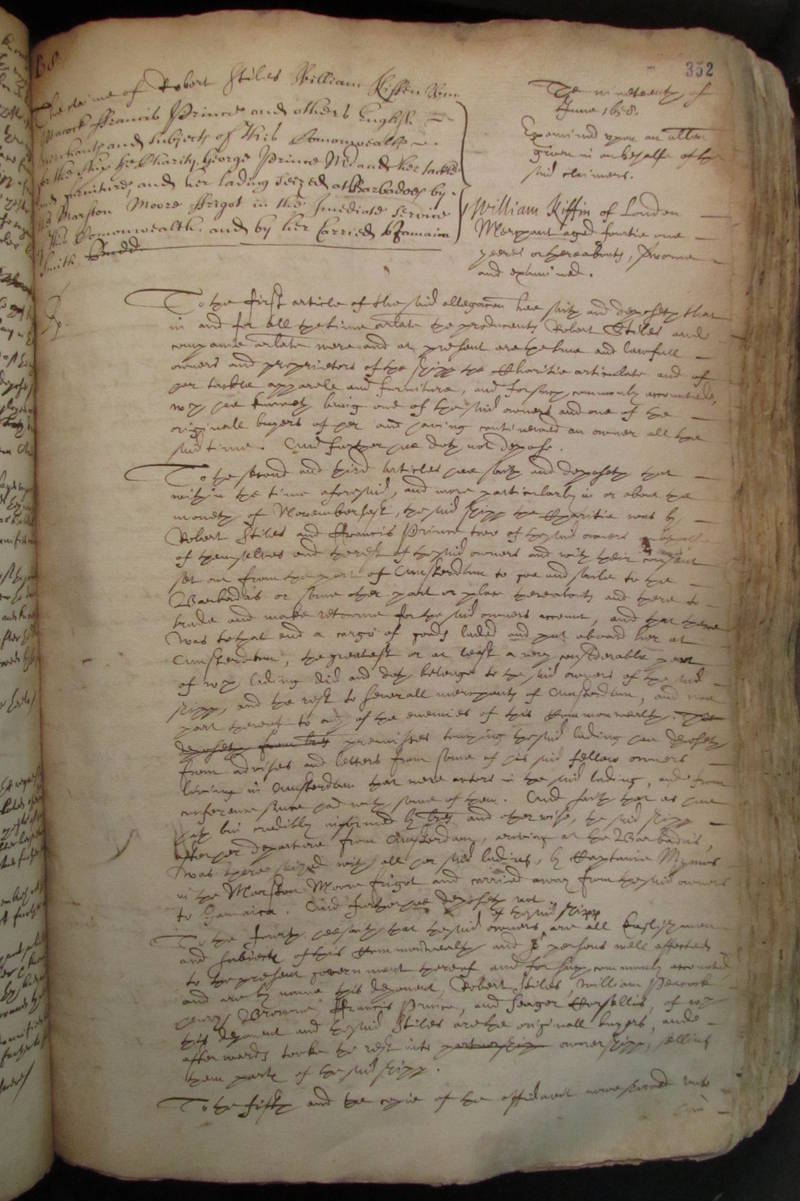 B8.
352
The claime of Robert Stiles William Kiffen Wm
Peacock Ffrancis Prince and others English
merchants and subiects of this Comonwealth
for the ship the Charity George Prince Mr and her tackle
and furniture and her lading seized at Barbadoes by
the Marston Moore frigot in the imediate service
of this Comonwealth and by her Carried to Jamaica
Smith. Budd
The nineteenth of
June 1658.
Examined upon an alle
given in on behalfe of the
said claimers.
William Kiffin of London
Merchant aged fortie one
yeeres or thereabouts, sworne
and examined.
To the first article of the said allegation hee saith and deposeth that
in and for all the time arlate the producents Robert Stiles and
companie arlate were and at present are the true and lawfull
owners and proprietors of the shipp the Charitie articulate and of
her tackle apparell and furniture, and for such commonly accounted,
which hee knoweth being one of the said owners and one of the
originall buyers of her and having continued an owner all the
said time. And further hee doth not depose.
To the second and third articles hee saith and deposeth that
within the time aforesaid, and more particularly in or about the
moneth of November last, the said shipp the Charitie was by
Robert Stiles and Ffrancis Prince two of the said owners
of themselves and the rest of the said owners and with their consent
set out from the port of Amsterdam to goe and saile to the
Barbados or some other port or place thereabouts and there to
trade and make returne for the said owners account, and that there
was to that end a cargo of goods laded and put aboard her at
Amsterdam, the greatest or at least a very considerable part
of which lading did and doth belonge to the said owners of the said
shipp, and the rest to severall merchants of Amsterdam, and noe
part thereof to any of the enemies of this Commonwealth.
deposeth from the premisses touching the said lading hee deposeth
from advises and letters from some of his said fellow owners
living in Amsterdam that were actors in the said lading, and from
conference since had with some of them. And saith that as hee
hath bin credibly informed by letters and otherwise, the said shipp
after her departure from Amsterdam, arriving at the Barbados,
was there seized with all her said lading, by Captaine Mynnes
in the Marston Moore frigot and carried away from the said owners
to Jamaica. And further hee deposeth not.
of the said shipp
To the fourth hee saith that the said owners, are all Englishmen
and subiects of this Commonwealth and persons well affected
to the present government thereof and for such commonly accounted
and are by name this deponent, Robert Stiles, William Peacock
Henry Browne, Ffrancis Prince, and Seager Horsellis, of which
this deponent and the said Stiles are the originall buyers, and
afterwards tooke the rest into partnershipp ownershipp, selling
them parts of the said shipp.
To the fifth and the copie of the affidavit mentioned